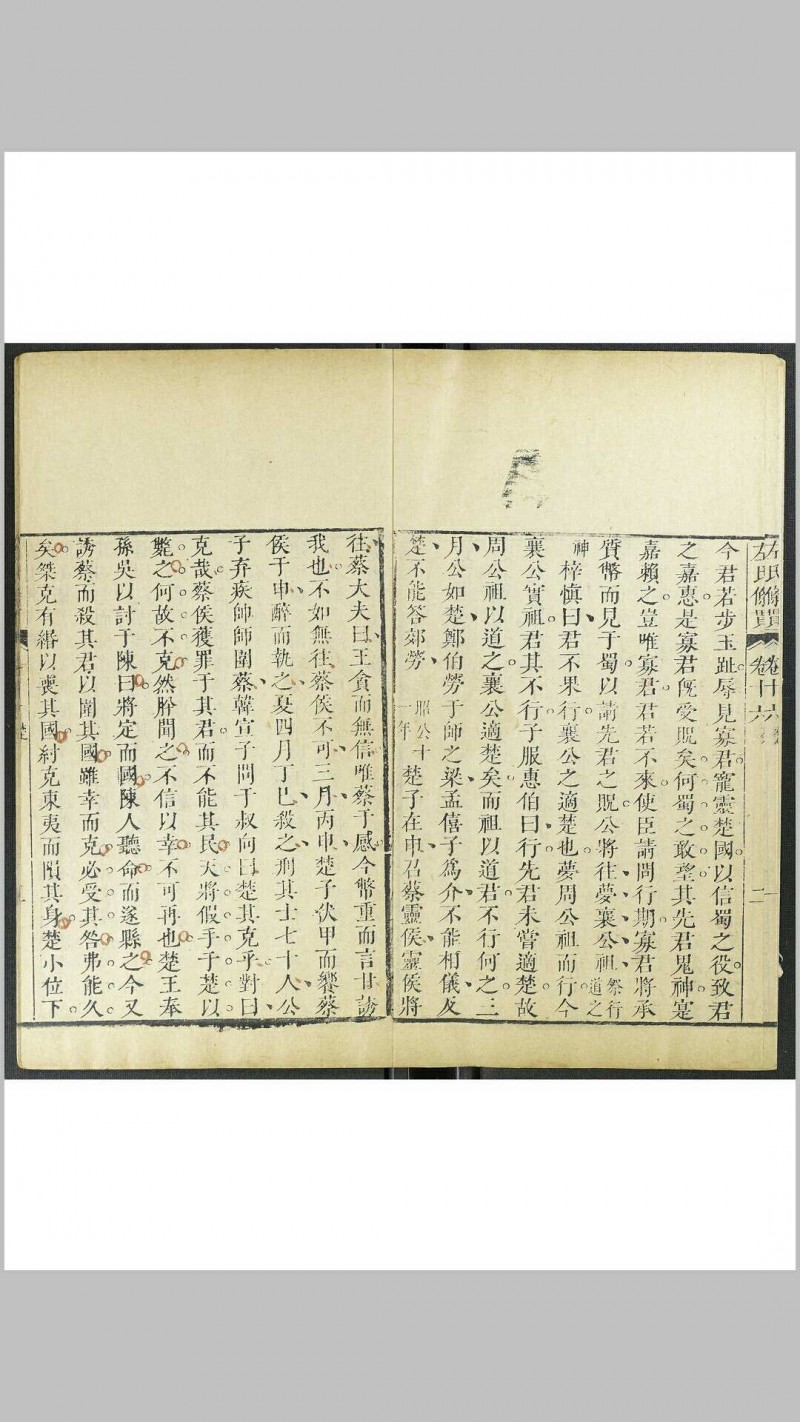 左氏條貫 卷十六 楚
今君若步玉趾辱見寡君寵靈楚國以信蜀之役致君
之嘉惠是寡君旣受貺矣何蜀之敢望其先君鬼神寔
嘉賴之豈唯寡君君若不來使臣請問行期寡君將承
質幣而見于蜀以請先君之貺公將往夢襄公祖祭行道之
神梓愼曰君不果行襄公之適楚也夢周公祖而行今
襄公實祖君其不行子服惠伯曰行先君未嘗適楚故
周公祖以道之襄公適楚矣而祖以道君不行何之三
月公如楚鄭伯勞于師之梁孟僖子爲介不能相儀及
楚不能答郊勞昭公十一年楚子在申召蔡靈侯靈侯將
往蔡大夫曰王貪而無信唯蔡于感今幣重而言甘誘
我也不如無往蔡侯不可三月丙申楚子伏甲而饗蔡
侯于申醉而執之夏四月丁巳殺之刑其士七十人公
子弃疾帥師圍蔡韓宣子問于叔向曰楚其克乎對曰
克哉蔡侯獲罪于其君而不能其民天將假手于楚以
斃之何故不克然肸聞之不信以幸不可再也楚王奉
孫吳以討于陳曰將定而國陳人聽命而遂縣之今又
誘蔡而殺其君以圍其國雖幸而克必受其咎弗能久
矣桀克有緡以喪其國紂克東夷而隕其身楚小位下